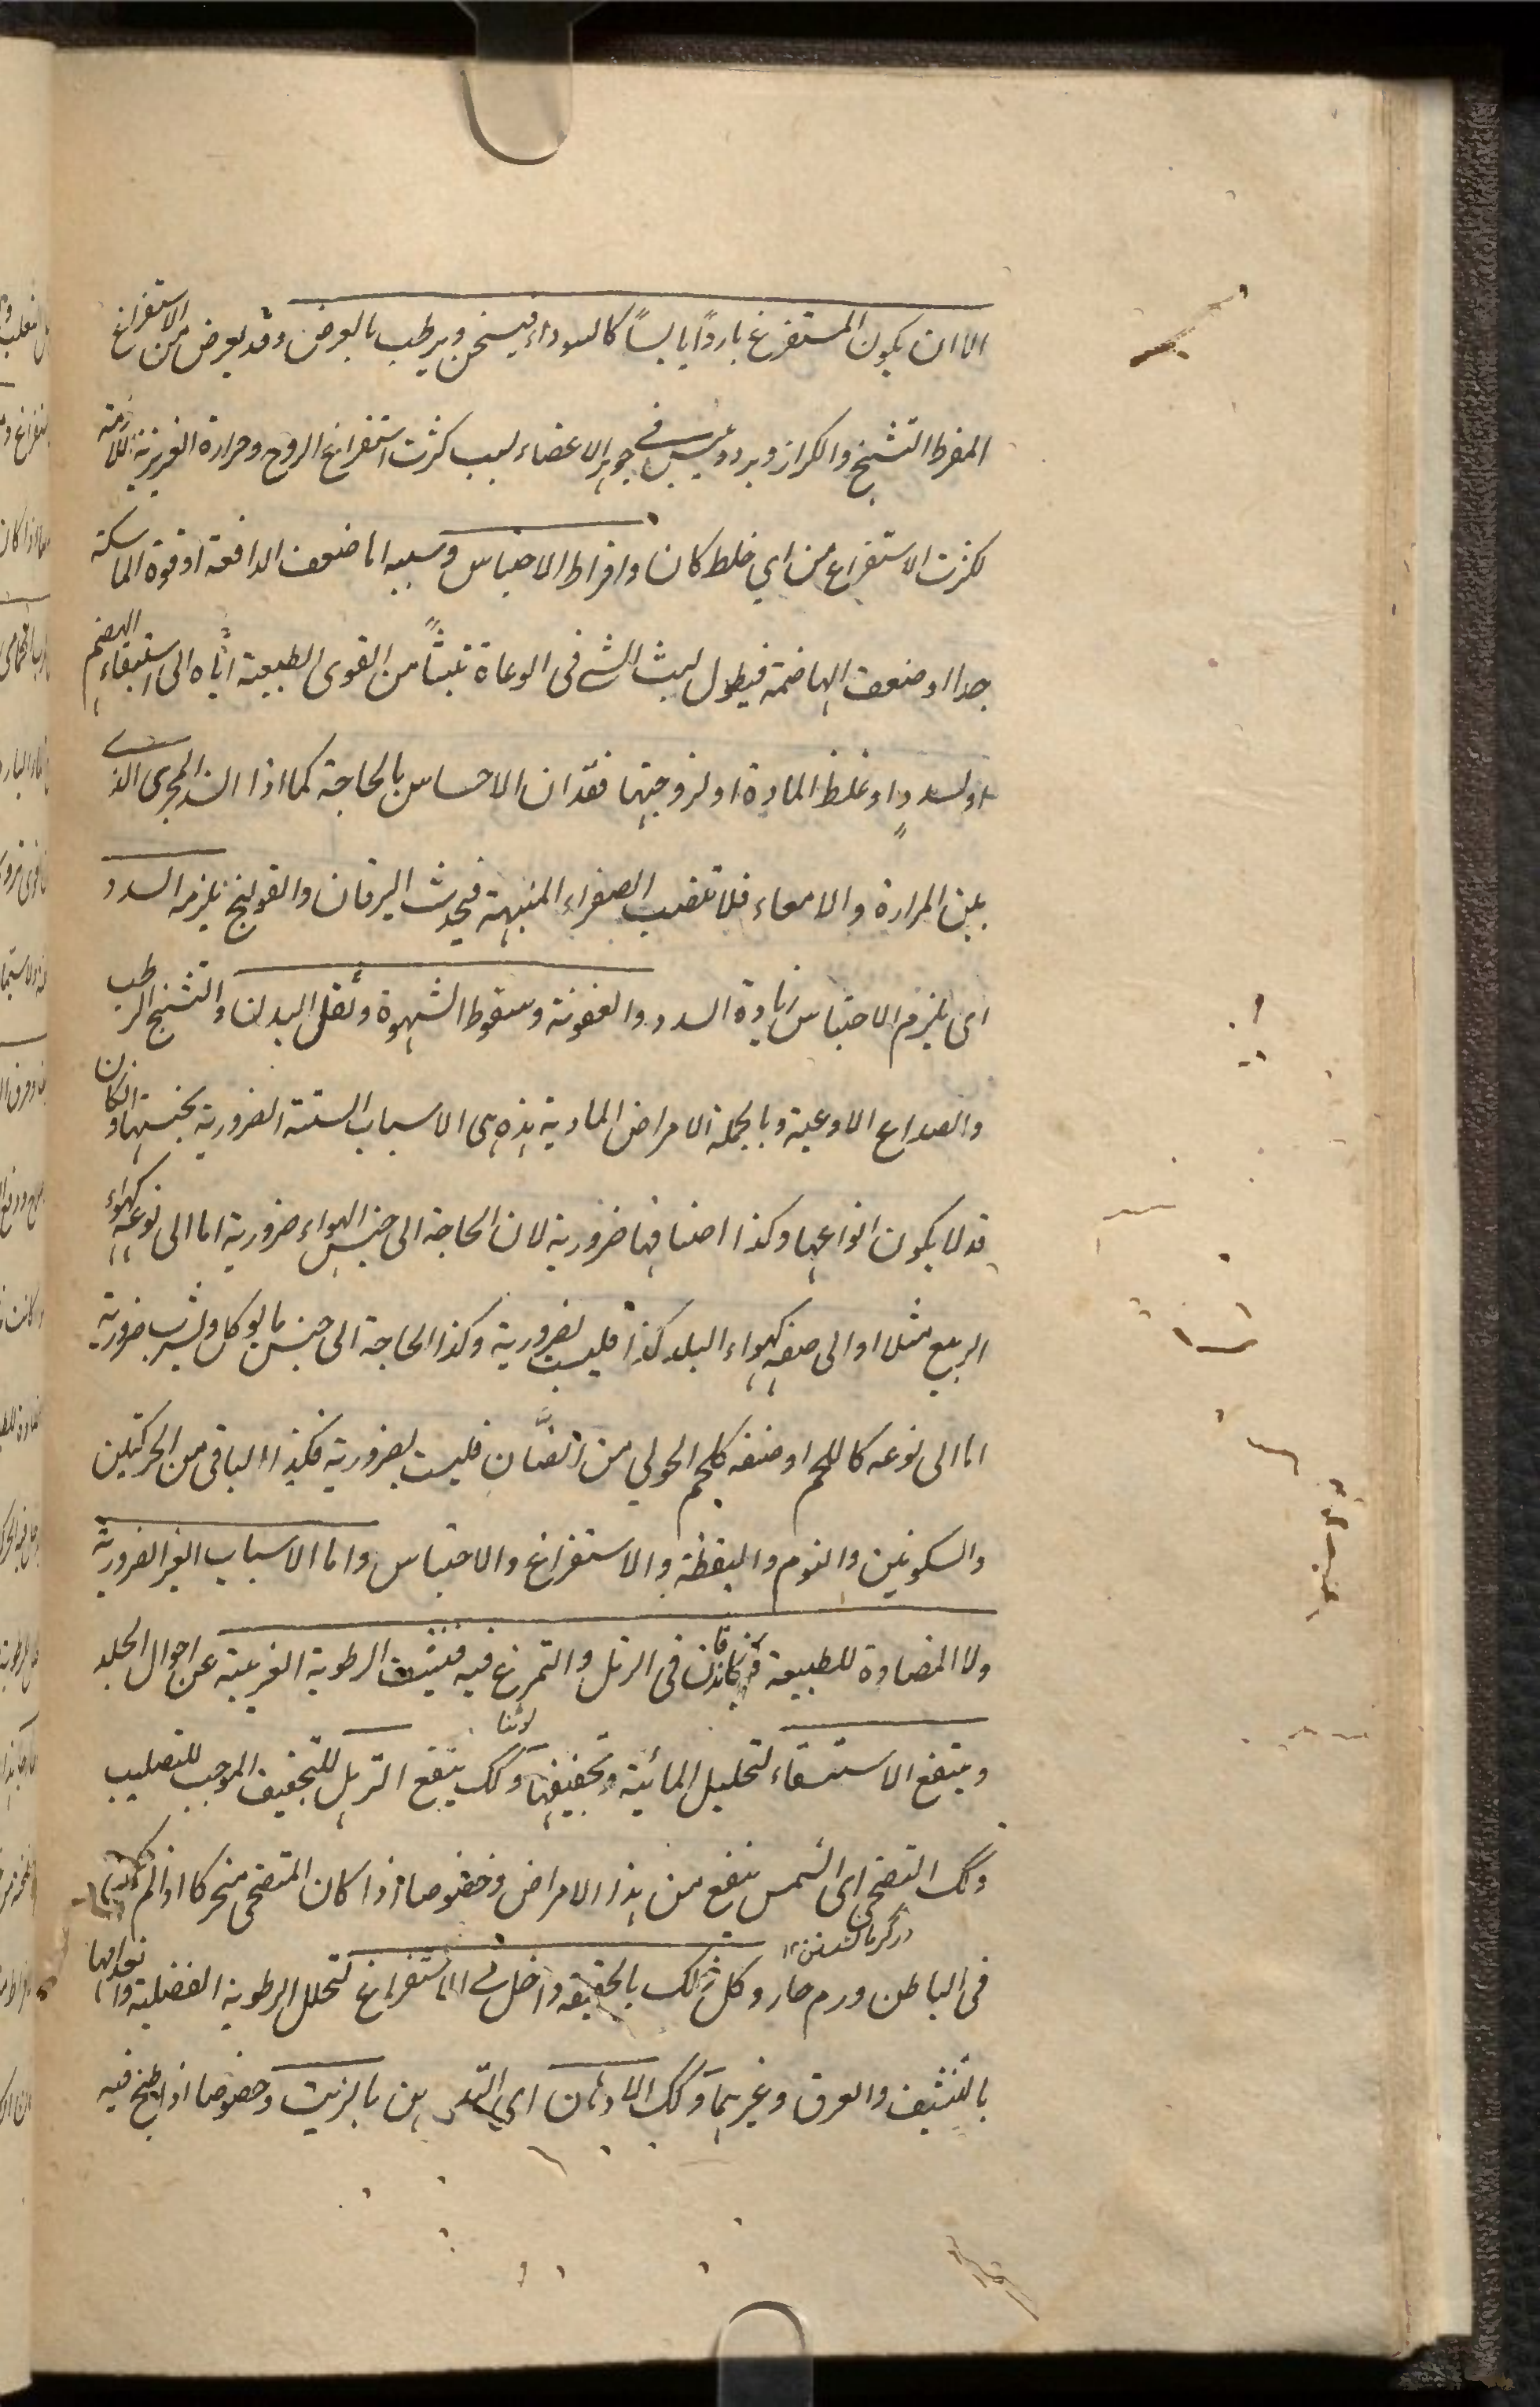 الا ان يكون المستفرغ باردًا يابسًا كالسوداء فيسخن ويرطب بالعرض وقد يعرض من الاستفراغ
المفرط التشنج والكزاز وبرد ويبس في جوهر الاعضاء لسبب كثرت استفراغ الروح وحرارة الغريزية اللازمة
لكثرت الاستفراغ من اي خلط كان وافراط الاحتباس وسببه اما ضعف الدافعة او قوة الماسكة
جدا او ضعف الهاضمة فيطول لبث الشي في الوعاة تلبثًا من القوى الطبيعية اياه الى استيفاء الهضم
او لسدد او غلظ المادة او لزوجتها فقدان الاحساس بالحاجة كما اذا انسد المجرى الذي
بين المرارة والامعاء فلا تنصب الصفراء المنبهة فيحدث اليرقان والقولنج يلزمه السدد
اى يلزم الاحتباس زيادة السدد والعفونة وسقوط الشهوة وثقل البدن والتشنج الرطب
والصداع الاوعية وبالجملة الامراض المادية هذه هى الاسباب الستة الضرورية بجنسها وان كان
قد لا يكون انواعها وكذا اصنافها ضرورية لان الحاجة الى جنس الهواء ضرورية اما الى نوعه كهواء
الربيع مثلا او الى صنفه كهواء البلد كذا فليست بضرورية وكذا الحاجة الى جنس ما يوكل ويشرب ضرورية
اما الى نوعه كاللحم او صنفه كلحم الحولي من الضّان فليست بضرورية فكذا الباقى من الحركتين
والسكونين والنوم واليقظة والاستفراغ والاحتباس واما الاسباب الغير الضرورية
ولا المضادة للطبيعة فكاندفان فى الرمل والتمرغ فيه فينشف الرطوبة الغريبة عن احوال الجلد
وينفع الاستسقاء لتحليل المائية وتجفيفها وكك ينفع الترهل للتجفيف الموجب للتصليب
وكك التضحى اى الشمس ينفع من هذا الامراض وخصوصا اذا كان المتضحى متحركا اذ الم يكن
فى الباطن ورم حار وكل ذلك بالحقيقة داخل في الاستفراغ لتحلل الرطوبة الفضلية وانعدامها
بالتنشيف والعرق وغيرهما وكك الادهان اي التدهين بالزيت وخصوصا اذا طبخ فيه